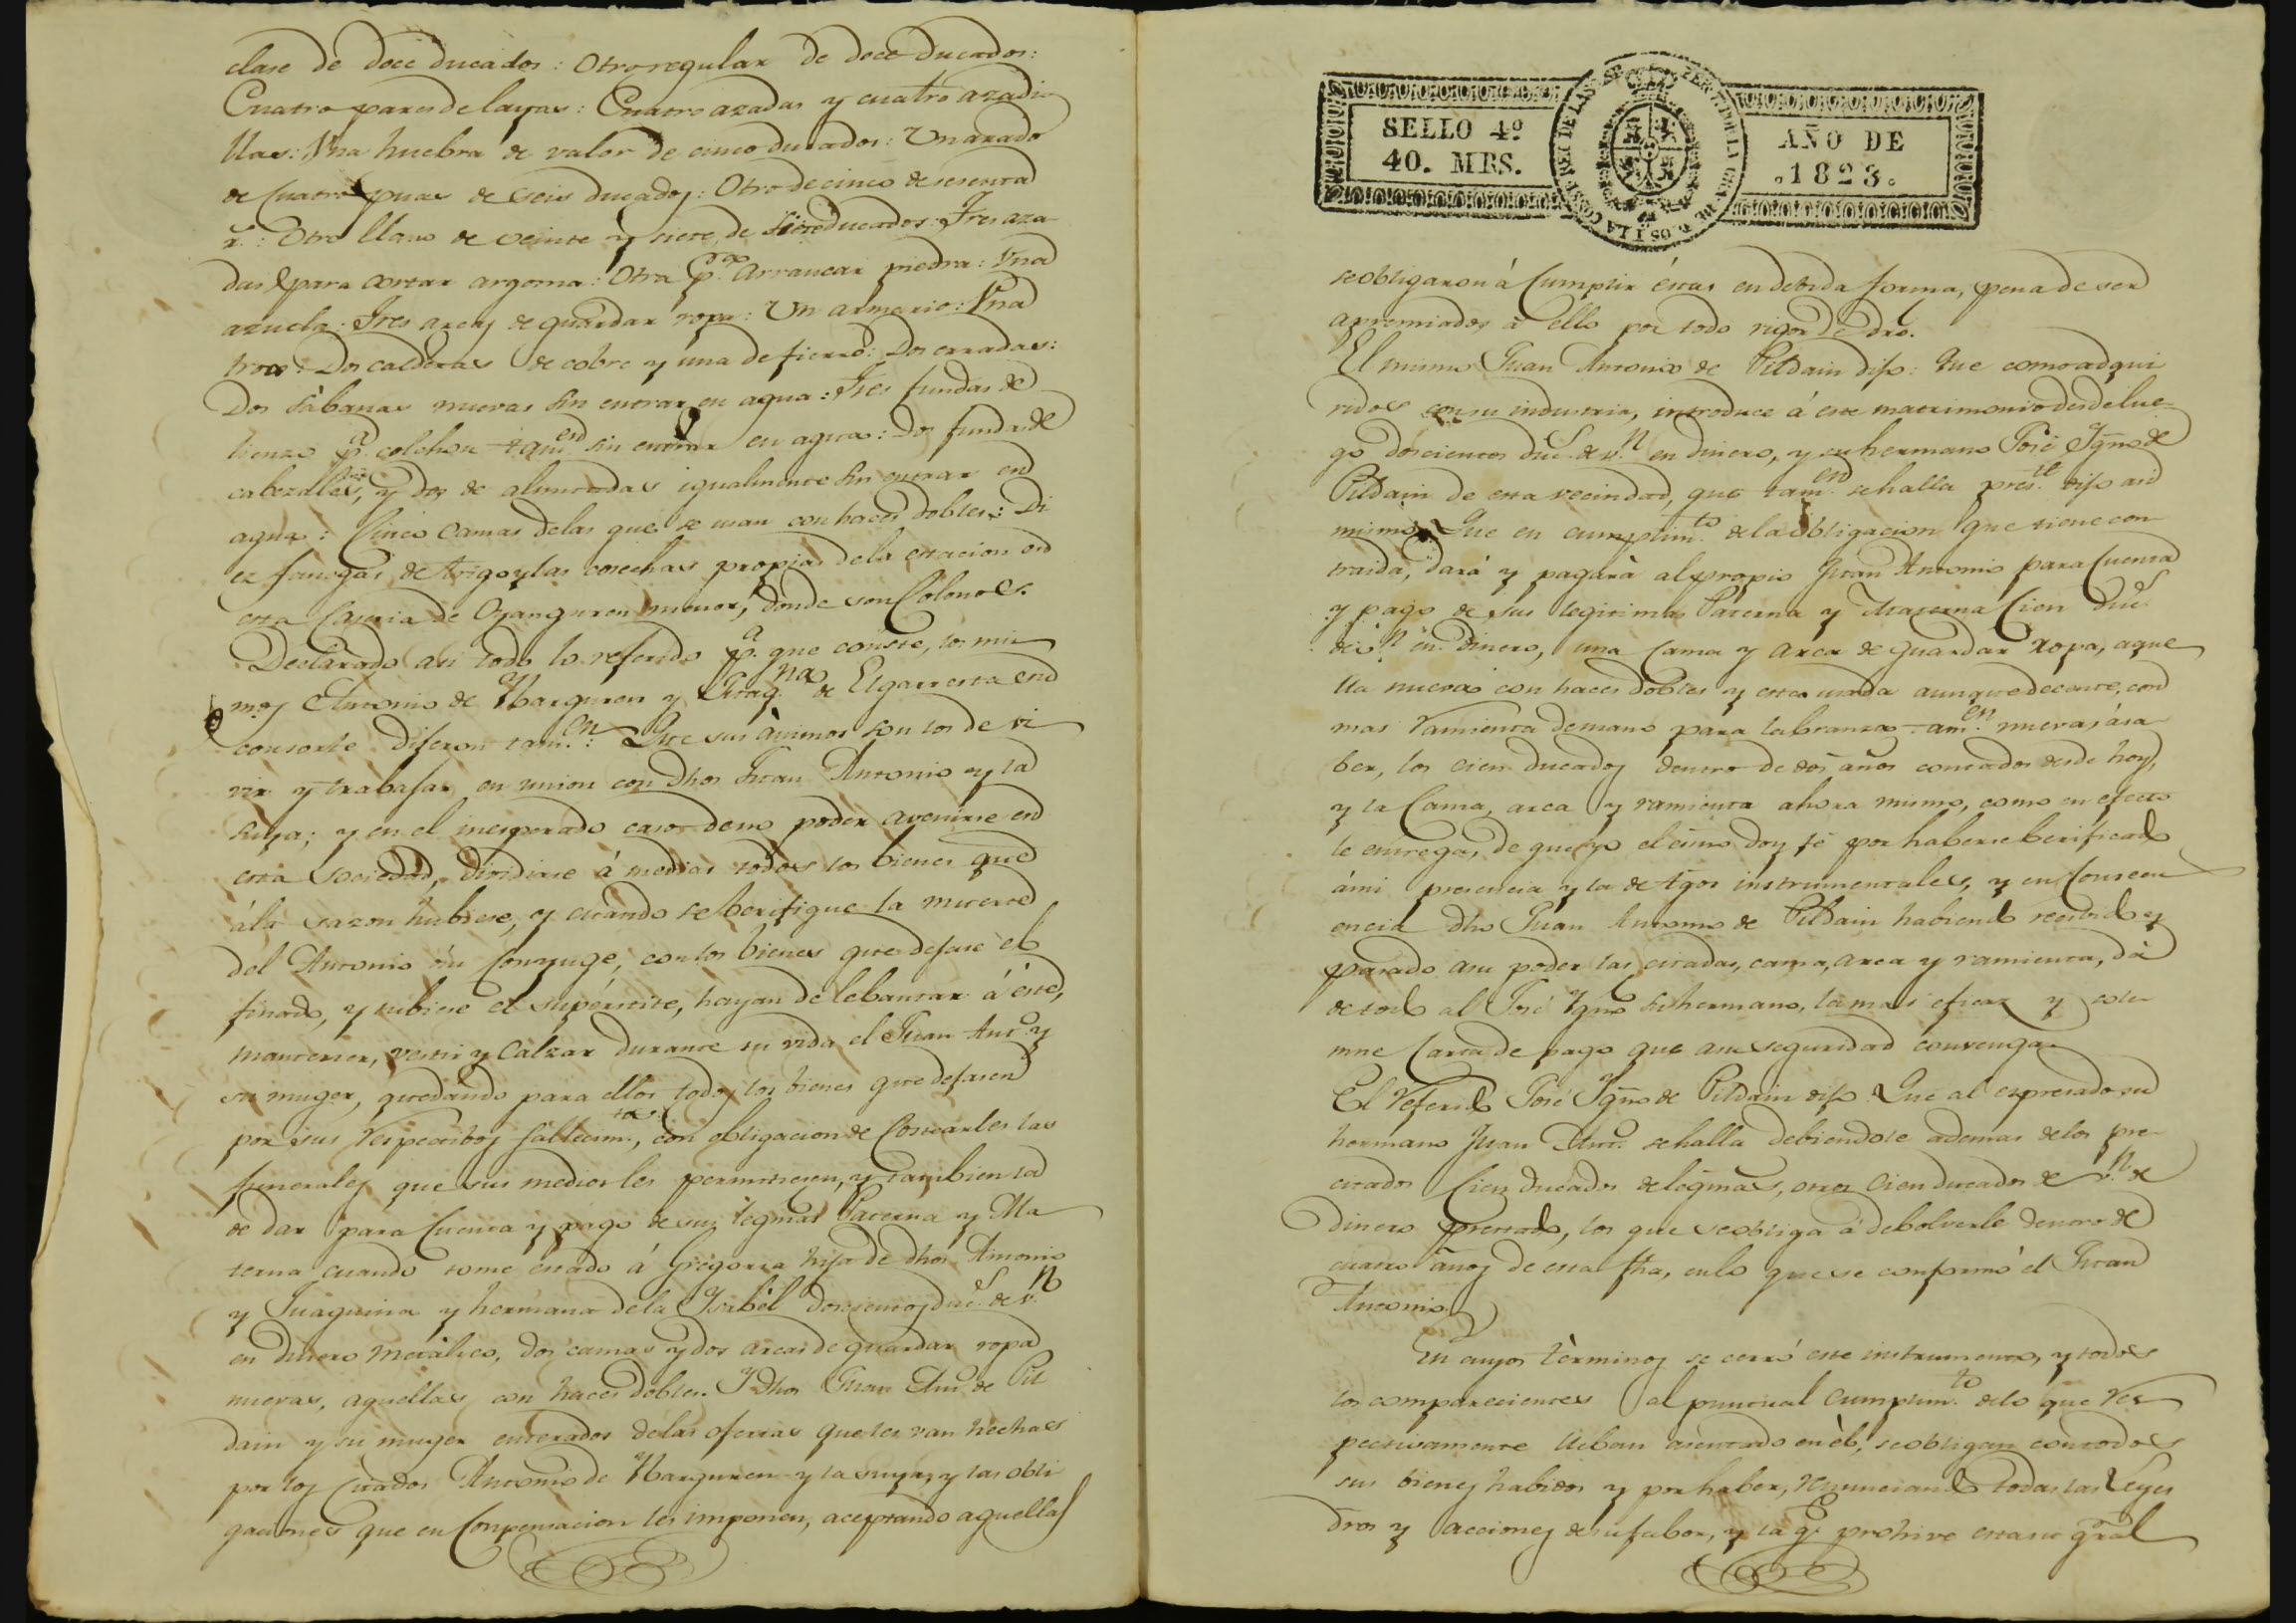 clase de doce ducados: Otro regular de doce ducados:
Cuatro pares de layas: Cuatro azadas y cuatro azadi-
llas: Una huebra de valor de cinco ducados: Un arado
de Cuatro puas de seis ducados: Otro de cinco de sesenta
r.s: Otro llano de veinte y siete, de siete ducados: Tres aza-
das para cortar argoma: Otra p.a arrancar piedra: Una
azuela: Tres arcas de guardar ropa: Un armario: Una
troxe: Dos calderas de cobre y una de fierro: Dos erradas:
Dos sàbanas nuevas sin entrar en agua: Tres fundas de
lienzo p.a colchon tam.en sin entrar en agua: Dos fundas de
cabezales, y dos de almoadas igualmente sin entrar en
agua: Cinco camas de las que se usan con haces dobles: Di
ez fanegas de trigo y las cosechas propias de la estacion en
esta Caseria de Oyanguren menor, donde son Colonos.
Declarado asi todo lo referido p.a que conste, los mis
mos Antonio de Ybarguren y Juaq.na de Elgarresta su
consorte dijeron tam.en: Que sus ànimos son los de vi
vir y trabajar en union con dhos Juan Antonio y la
suya; y en el inesperado caso de no poder avenirse en
esta sociedad, dividirse á medias todos los bienes que
á la sazon hubiere, y cuando se berifique la muerte
del Antonio ó su Conyuge, con los bienes que dejare el
finado, y tubiere el supérstite, hayan de lebantar á éste,
mantener, vestir y Calzar durante su vida el Juan Ant.o y
su muger, quedando para ellos todos los bienes que dejasen
por sus respectibos fallecim.tos, con obligacion de Costearles los
funerales que sus medios les permitiesen, y tambien la
de dar para Cuenta y pago de sus legmas Paterna y Ma
terna cuando tome estado á Gregoria hija de dhos Antonio
y Juaquina y hermana de la Ysabèl doscientos duc.s de v.n
en dinero metàlico, dos camas y dos arcas de guardar ropa
nuevas, aquellas con haces dobles. Y dhos Juan Ant.o de Pil
dain y su muger enterados de las ofertas que les van hechas
por los citados Antonio de Ybarguren y la suya, y las obli
gaciones que en Conpensacion les imponen, aceptando aquellas
SELLO 4º
40. MRS.
AÑO DE
.1823.
se obligaron á Cumplir éstas en debida forma, pena de ser
apremiados à ello por todo rigor de dro.
El mismo Juan Antonio de Pildain dijo: Que como adqui
ridos con su industria, introduce á este matrimonio desde lue-
go doscientos duc.s de v.n en dinero, y su hermano José Ygno de
Pildain de esta vecindad, que tam.en se halla pres.te dijo asi
mismo: Que en cumplim.to de la obligacion que tiene con
traida, dará y pagarà al propio Juan Antonio para Cuenta
y pago de sus legitimas Paterna y Materna Cien duc.s
de v.n en dinero, una Cama y arca de guardar ropa, aque
lla nueva con haces dobles y esta usada aunque decente, con
mas ramienta de mano para labranza tam.en nueva, á sa
ber, los cien ducados dentro de dos años contados desde hoy,
y la Cama, arca y ramienta ahora mismo, como en efecto
le entrega, de que yo el ésno doy fé por haberse berificado
á mi presencia y la de tgos instrumentales, y en Consecu
encia dho Juan Antonio de Pildain habiendo recibido y
pasado a su poder las citadas, cama, arca y ramienta, dà
de todo al José Ygno su hermano, la mas eficaz y sole
mne Carta de pago que a su seguridad convenga.
El Referido José Ygno de Pildain dijo: Que al expresado su
hermano Juan Ant.o se halla debiendole ademas de los pre-
citados Cien ducados de legmas, otros Cien ducados de v.n de
dinero prestado, los que se obliga à debolverle dentro de
cuatro años de esta fha, en lo que se conformó el Juan
Antonio.
En cuyos tèrminos se cerró este instrumento, y todos
los comparecientes al puntual cumplim.to de lo que res
pectivamente lleban asentado en èl, se obligan con todos
sus bienes habidos y por haber, renunciando todas las Leyes
dros y acciones de su fabor, y la q.e prohive esta en gral